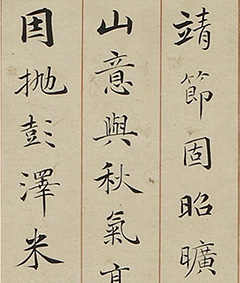 靖節固昭曠
山意與秋氣高
因抛彭澤米